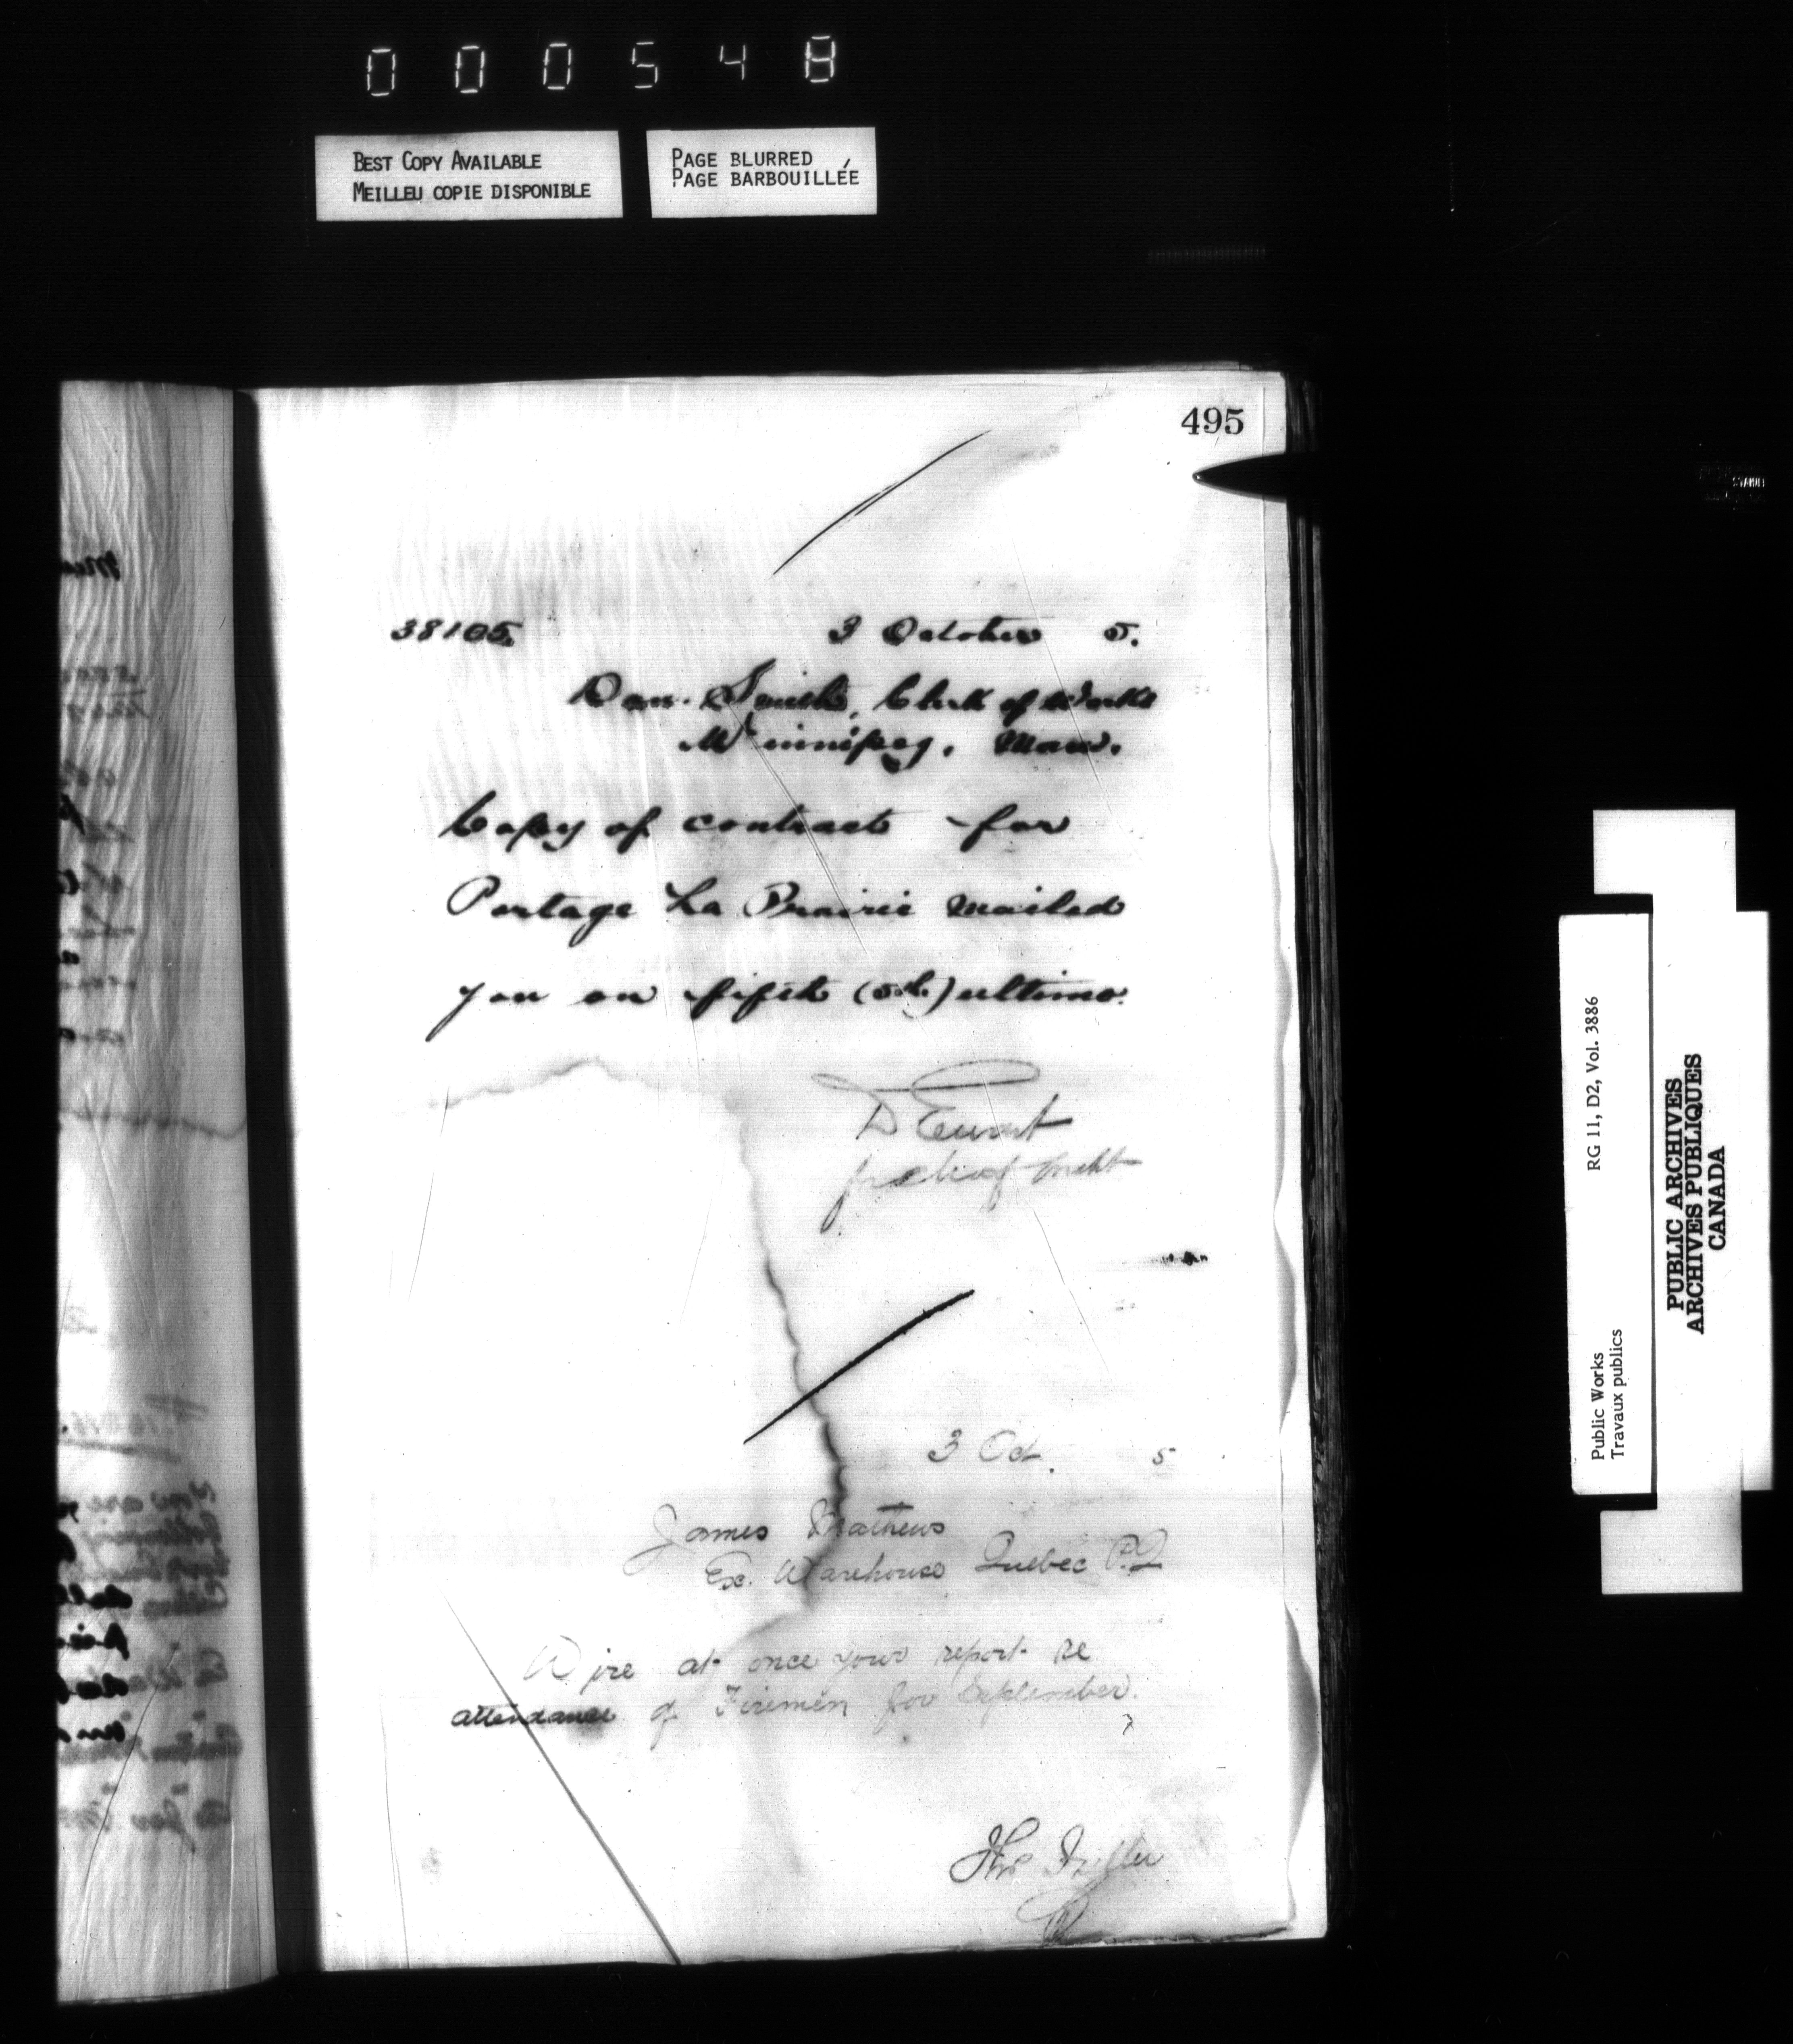 000548
BEST COPY AVAILABLE
MEILLEU COPIE DISPONIBLE
PAGE BLURRED
PAGE BARBOUILLÉE
495
38105. 3 October 5.
Dan. Smith, Clerk of Works
Winnipeg, Man.
Copy of contract for
Portage La Prairie mailed
you on fifth (5th) ultimo.
D Ewart
3 Oct. 5
James Mathews
Ex. Warehouse Quebec P.Q
Wire at once your report re
attendance of Firemen for September.
Public Works
Travaux publics
RG 11, D2, Vol. 3886
PUBLIC ARCHIVES
ARCHIVES PUBLIQUES
CANADA